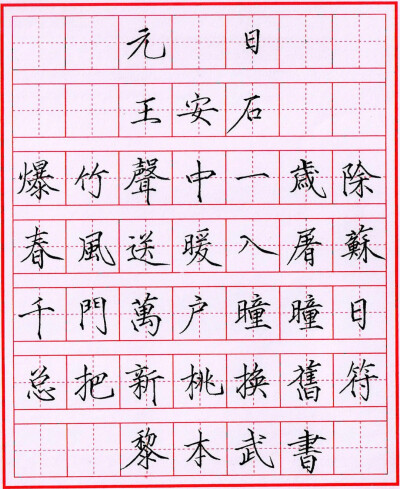 元日
王安石
爆竹聲中一歲除
春風送暖入屠蘇
千門萬户曈曈日
总把新桃換舊符
黎本武書